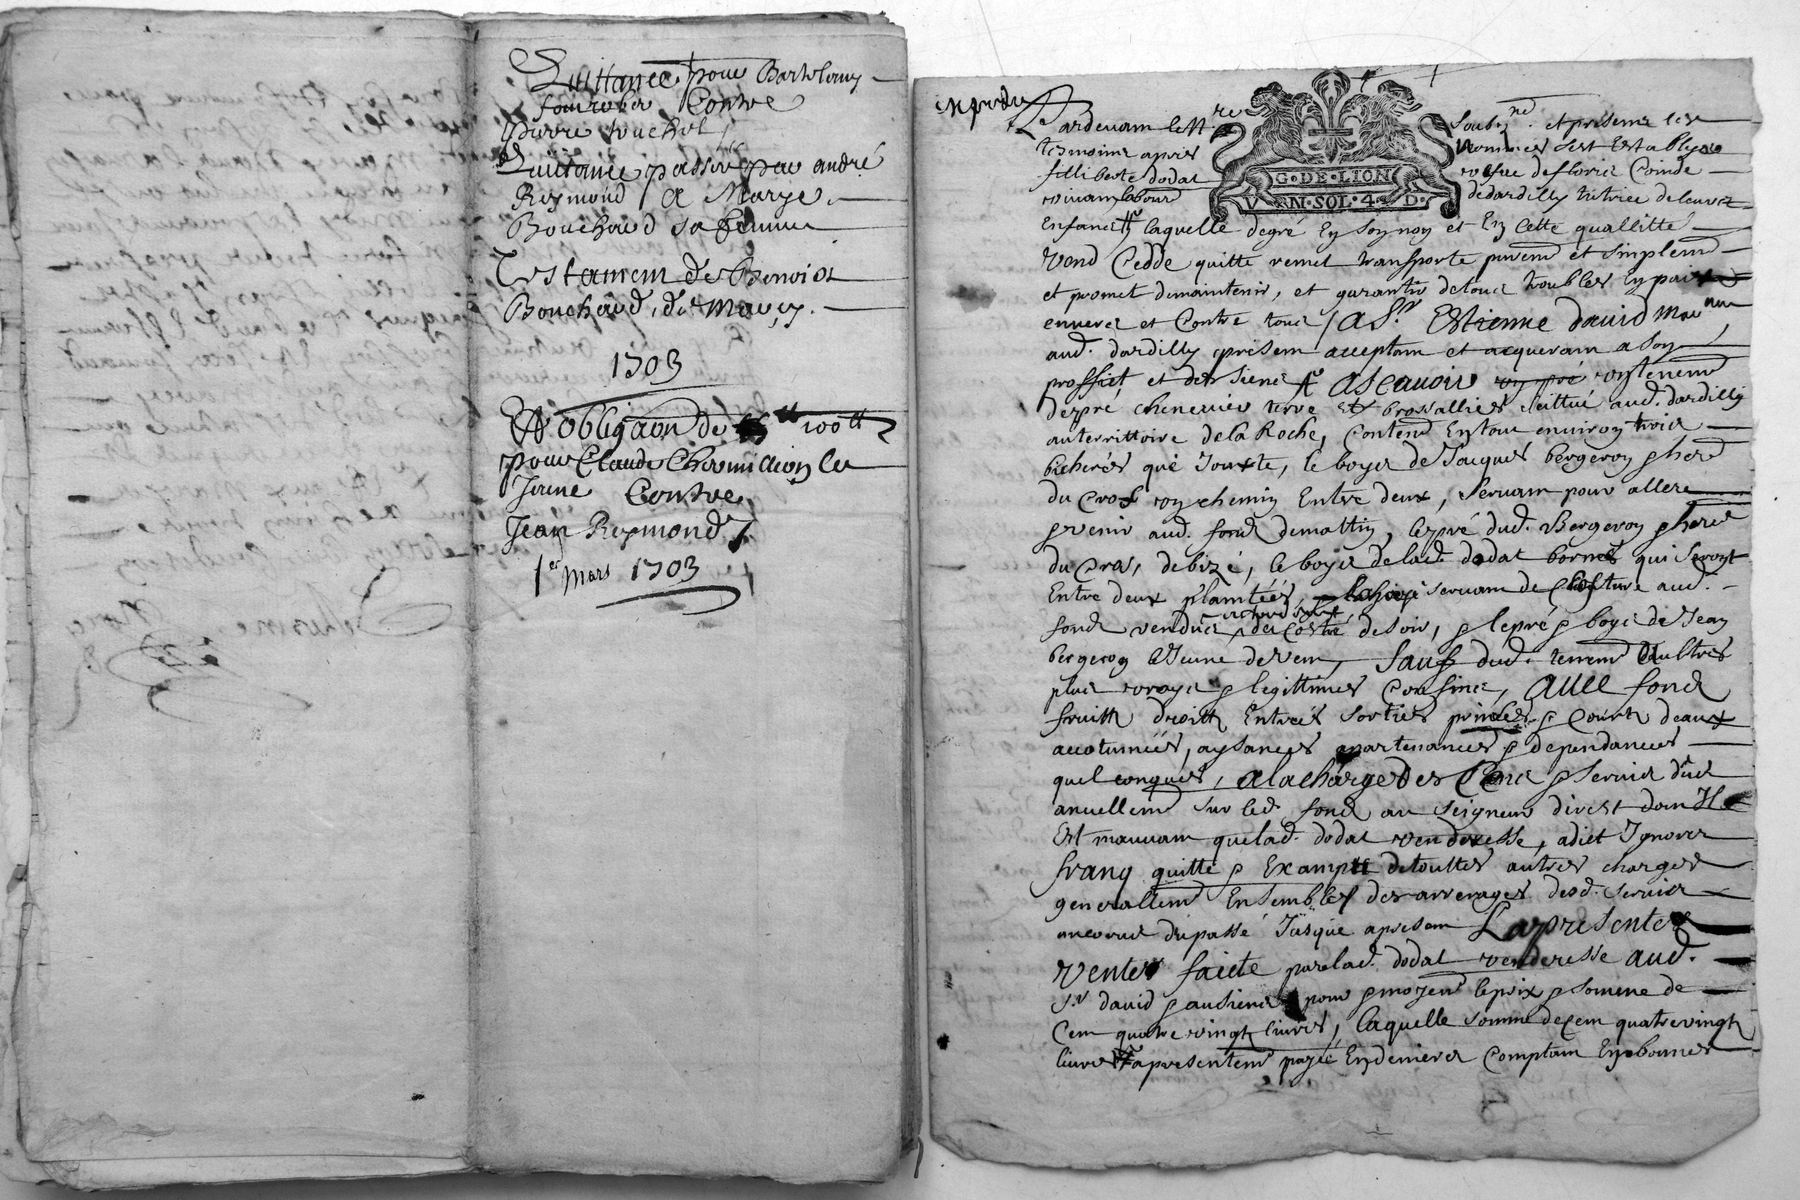 Quittance pour Bartelemy
Contre
Pierre Souchet
Quittance passée par andré
Reymond A Marye
Bouchard sa femme
Testament de Benoist
Bouchard, de Marcy.
1703
obligaon de 100tt
pour Claude Chermillion le
Jeune Contre
Jean Reymond
1er Mars 1703
Pardevant le Nre soubzne. et présence des
tesmoins apres nommes s'est Establye
filliberte dodat vefve de floris Coinde
vivant labour de dardilly tutrice de leurs
G·DE·LION
V N·SOL·4·D·
enfans laquelle degré En son nom et En cette quallitté
Vend Cedde quitte remet transporte puremt et simplemt
et promet demaintenir, et garantir detous troubles En paix
envers et Contre tous A Sr Estienne david
aud. dardilly présent acceptant et acquerant a son
proffict et des siens Ascavoir un pré un tenemt
de pré cheneviere terre Et brossallies scittué aud. dardilly
au territtoire de la Roche, Content En tout environ trois
bicherés que Jouxte, le boys de Jacques bergeron
du Cros un chemin Entre deux, servant pour aller
venir aud. fond dematin, le pré dud. Bergeron
du Cros, de bize, le boys de lad. dodat bornes qui seront
Entre deux plantées, servant de Closture aud.
fond vendus du Costé de soir, le pré boys de Jean
bergeron le Jeune de vent, Sauf dud. tenemt Aultres
plus vrays legittimes Confins, Avec fond
fruitz droitz Entrées sorties prinses Cours deaux
accotumées, aysances apartenances dependances
quelconques, A la charge Des Cens service dus
anuellemt sur led. fond au seigneur direct dont Il
Est mouvant que lad. dodat venderesse, a dict Ignorer
franq quitte Exampt de touttes autres charges
generallemt Ensembles des arrerages desd. servis
encourus du passé Jusque a present La presente
vente faicte par lad. dodat venderesse aud.
Sr david aux siens pour moyent le prix somme de
Cent quatre vingt livres, laquelle somme de cent quatre vingt
livres a presentemt payée En deniers Comptant En bonnes